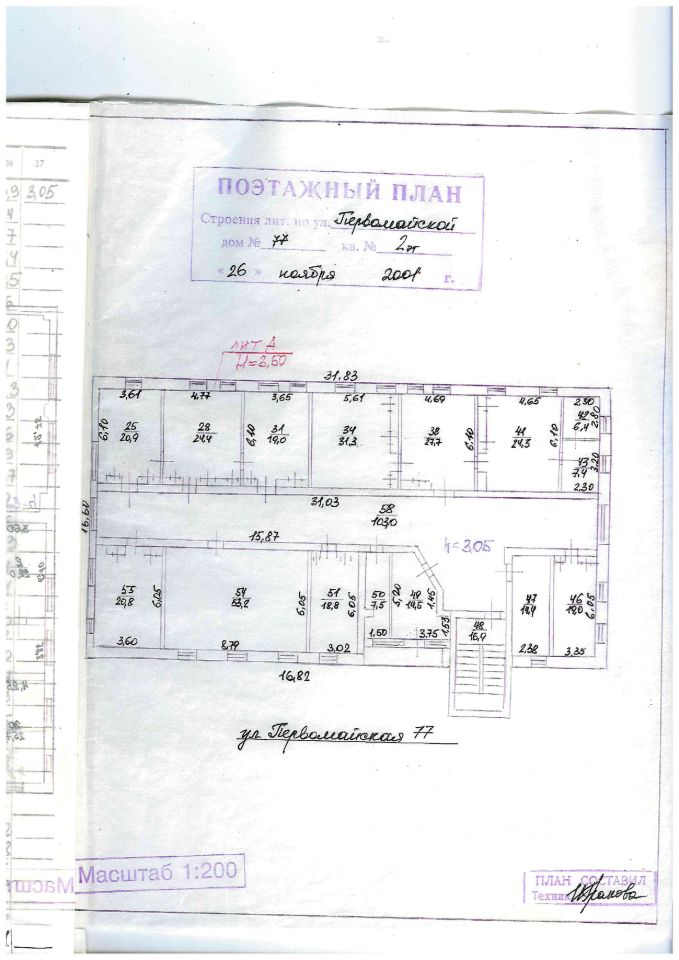 37
3,05
ПОЭТАЖНЫЙ ПЛАН
Строения лит. по ул. Первомайской
дом № 77 кв. № 2 эт
" 26 " ноября 2001 г.
лит А
H=3,50
31,83
3,61 4,77 3,65 5,61 4,69 4,65 2,30
25
20,9
6,10
28
24,4
6,10
31
19,0
34
31,3
38
27,7
6,10
41
24,3
6,10
42
6,4
2,80
43
7,4
3,20
2,30
31,03
58
103,0
16,60
15,87
h=3,05
55
20,8
6,05
3,60
54
53,2
6,05
8,79
51
18,8
6,05
3,02
50
7,5
1,50
5,20
49
19,5
1,45
3,75
1,55
48
16,9
47
14,4
2,38
46
19,0
6,05
3,35
16,82
ул Первомайская 77
Масштаб 1:200
ПЛАН СОСТАВИЛ
Техник